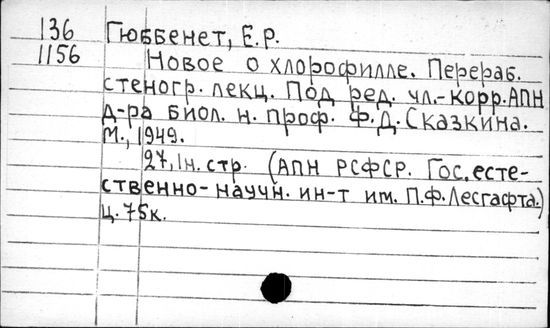 136 Гюббенет, Е.Р.
1156 Новое о хлорофилле. Перераб.
стеногр. лекц. Под ред. чл.-корр. АПН
д-ра биол. н. проф. Ф.Д. Сказкина.
М., 1949.
27, 1н. стр. (АПН РСФСР. Гос. есте-
ственно-научн. ин-т им. П.Ф. Лесгафта.)
ц. 75к.